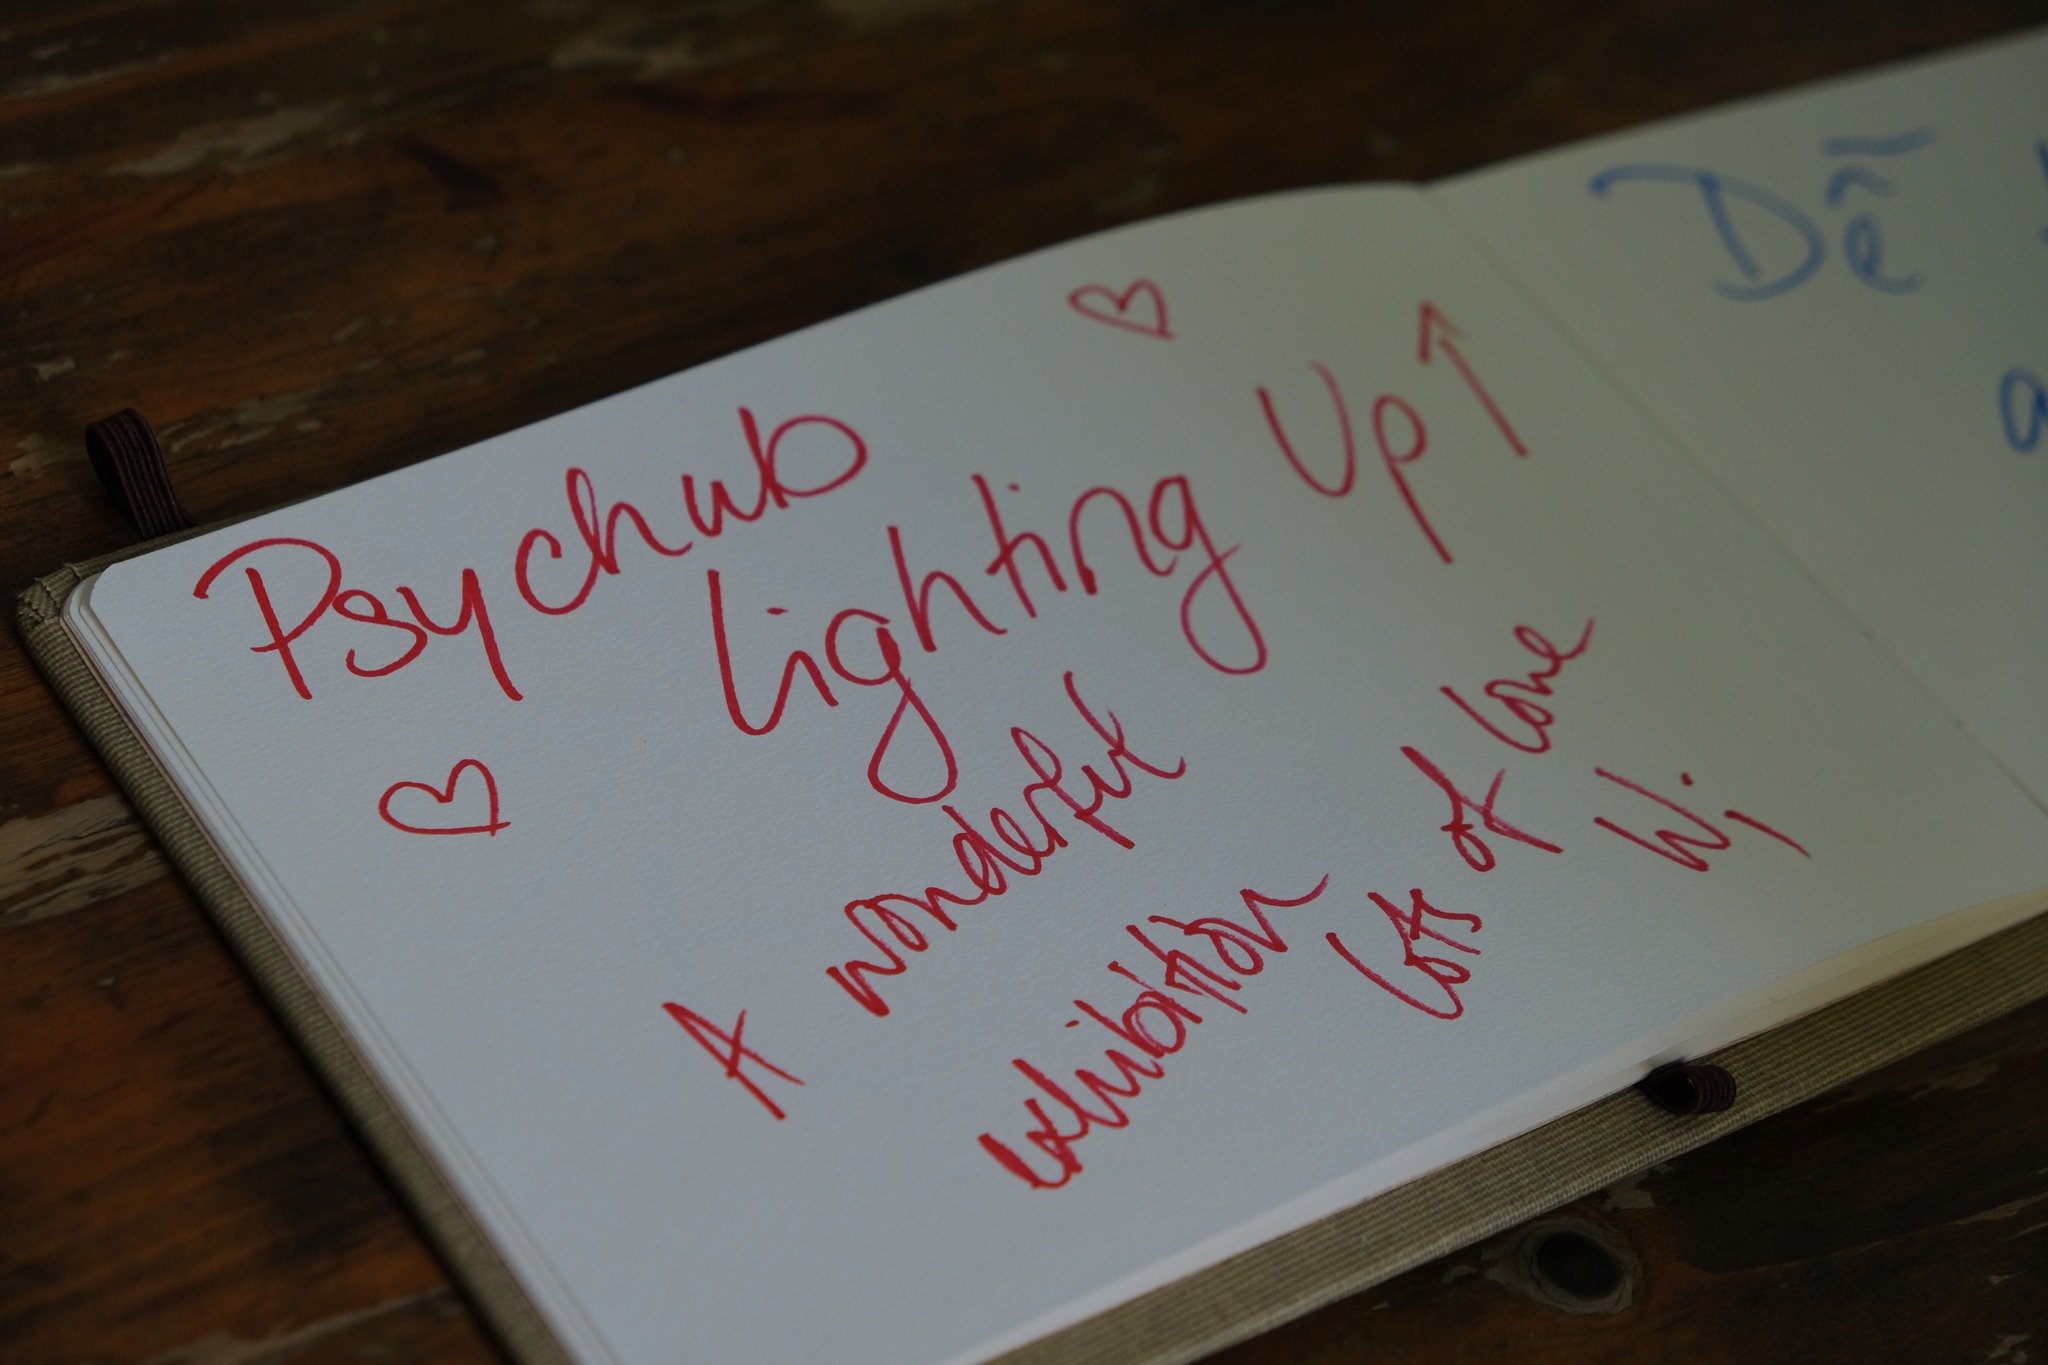 Psychub
Lighting Up
A wonderful
exhibition
Lots of love